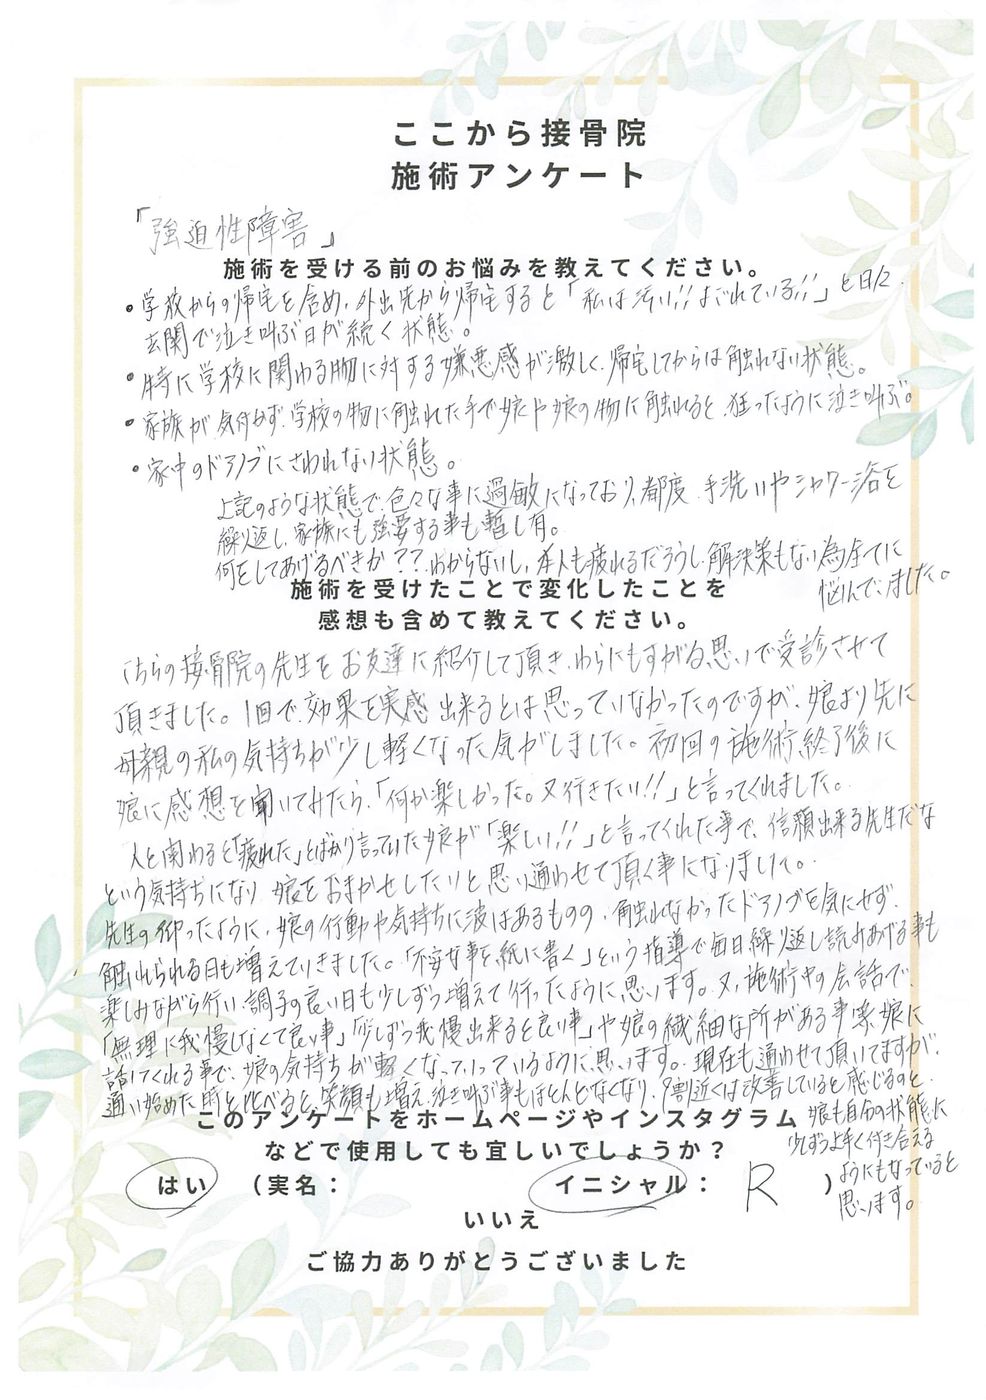 ここから接骨院
施術アンケート
「強迫性障害」
施術を受ける前のお悩みを教えてください。
・学校からの帰宅を含め、外出先から帰宅すると「私は汚い!!よごれている!!」と日々
玄関で泣き叫ぶ日が続く状態。
・特に学校に関わる物に対する嫌悪感が激しく、帰宅してからは触れない状態。
・家族が気付かず、学校の物に触れた手で娘や娘の物に触れると、狂ったように泣き叫ぶ。
・家中のドアノブにさわれない状態。
上記のような状態で、色々な事に過敏になっており、都度、手洗いやシャワー浴を
繰り返し、家族にも強要する事も暫し有。
何をしてあげるべきか??わからないし、本人も疲れるだろうし、解決策もない為全てに
悩んでいました。
施術を受けたことで変化したことを
感想も含めて教えてください。
こちらの接骨院の先生をお友達に紹介して頂き、わらにもすがる思いで受診させて
頂きました。1回で、効果を実感出来るとは思っていなかったのですが、娘より先に
母親の私の気持ちが少し軽くなった気がしました。初回の施術終了後に
娘に感想を聞いてみたら、「何か楽しかった。又行きたい!!」と言ってくれました。
人と関わると「疲れた」とばかり言っていた娘が「楽しい!!」と言ってくれた事で、信頼出来る先生だな
という気持ちになり、娘をおまかせしたいと思い通わせて頂く事になりました。
先生の仰ったように、娘の行動や気持ちに波はあるものの、触れなかったドアノブを気にせず、
触れられる日も増えていきました。「不安な事を紙に書く」という指導で毎日繰り返し読みあげる事も
楽しみながら行い、調子の良い日も少しずつ増えて行ったように思います。又、施術中の会話で、
「無理に我慢しなくて良い事」「少しずつ我慢出来ると良い事」や娘の繊細な所がある事等、娘に
話してくれる事で、娘の気持ちが軽くなっていっているように思います。現在も通わせて頂いてますが、
通い始めた時と比べると、笑顔も増え、泣き叫ぶ事もほとんどなくなり、9割近くは改善していると感じるのと、
娘も自分の状態に
少しずつ上手く付き合える
ようにもなっていると
思います。
このアンケートをホームページやインスタグラム
などで使用しても宜しいでしょうか?
はい (実名: イニシャル: R )
いいえ
ご協力ありがとうございました